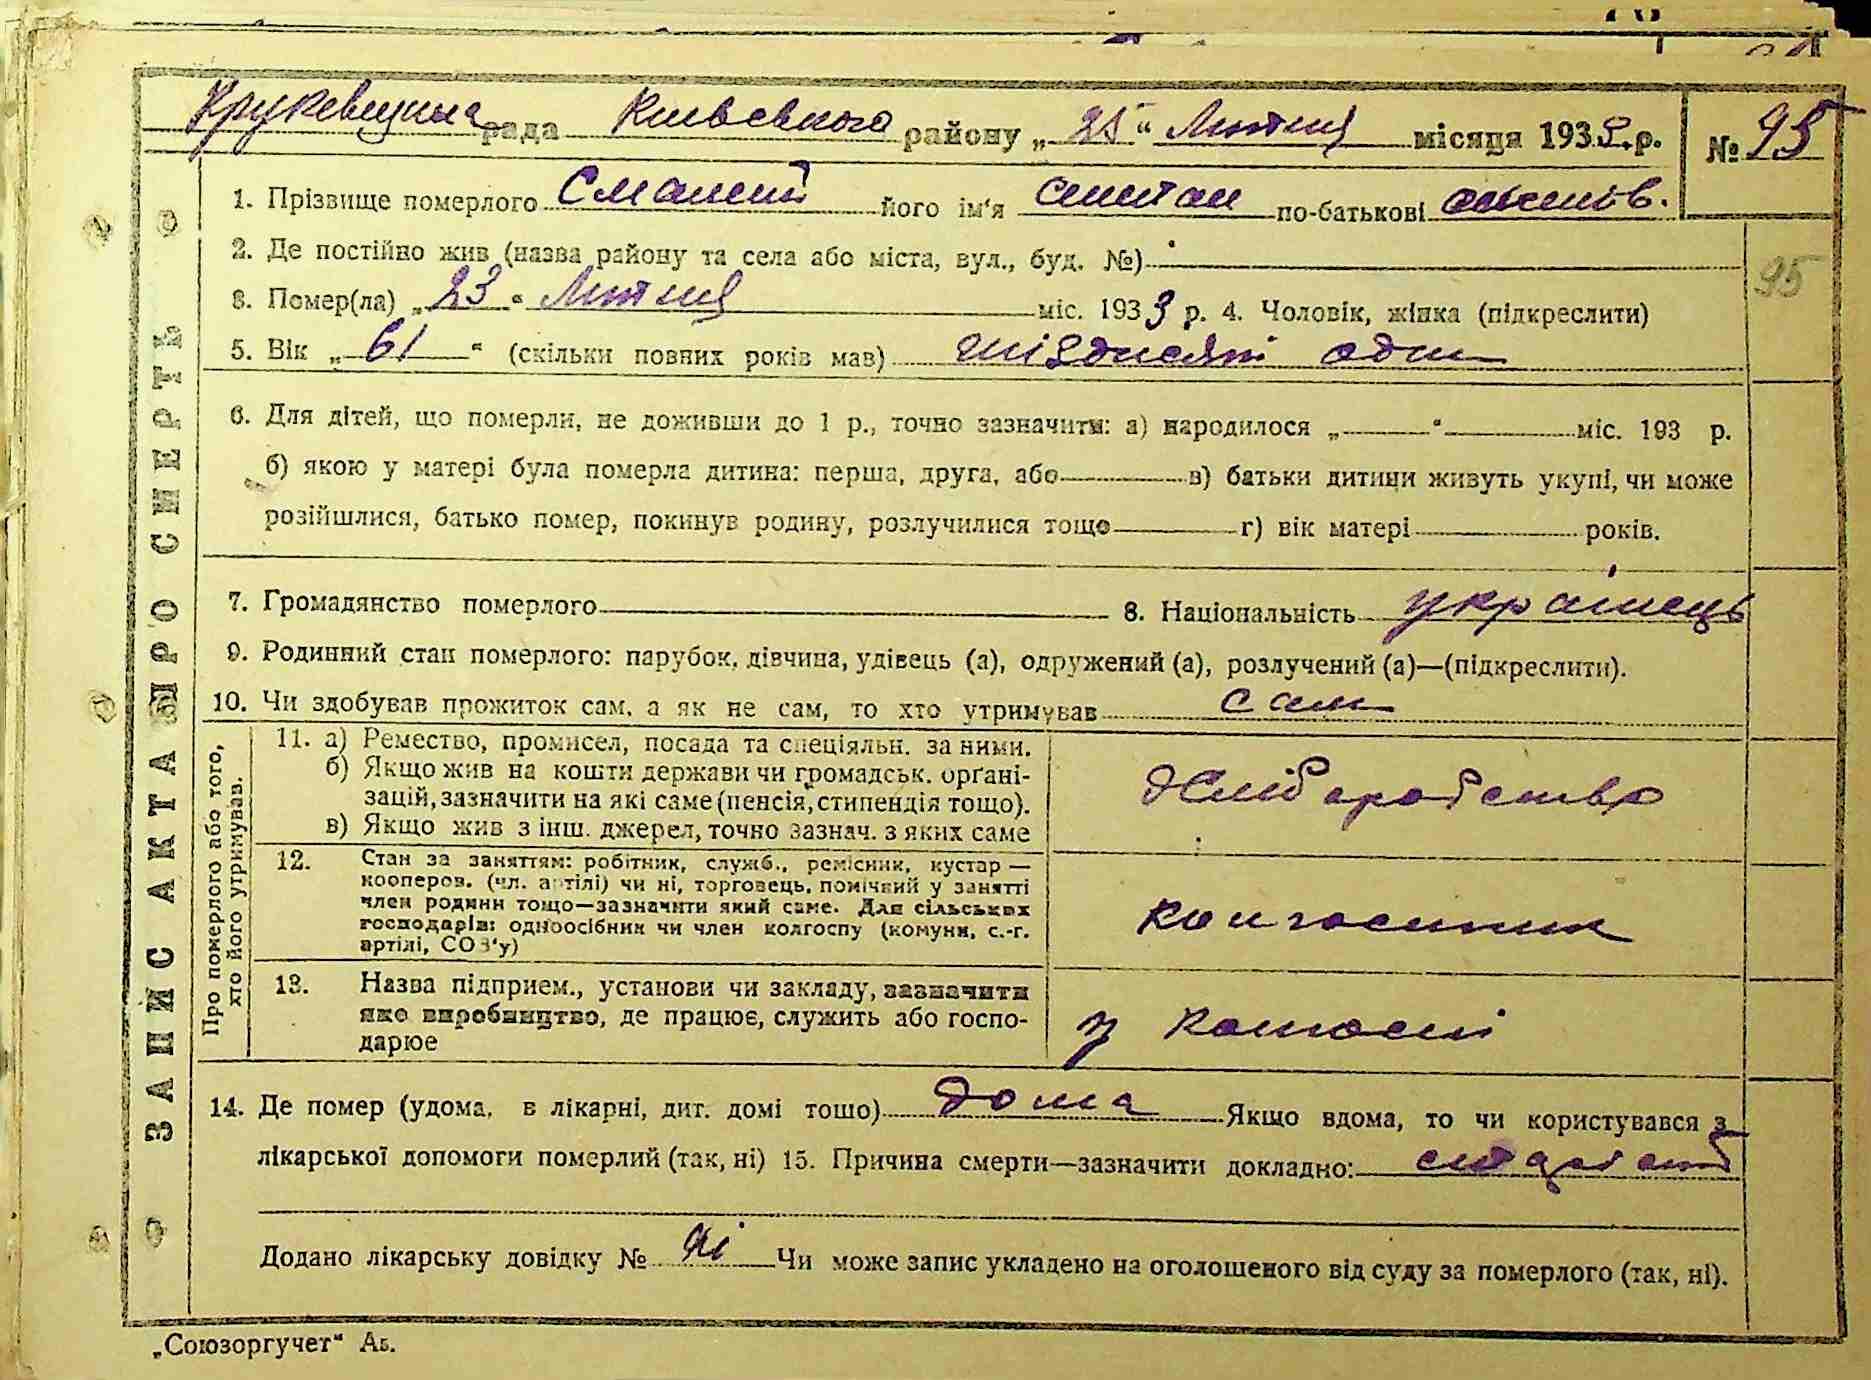 рада Київського району „25“ Лютня місяця 1933 р. № 95
1. Прізвище померлого його ім'я Степан по-батькові
2. Де постійно жив (назва району та села або міста, вул., буд. №)
95
3. Помер(ла) „23“ Лютня міс. 1933 р. 4. Чоловік, жінка (підкреслити)
5. Вік „61“ (скільки повних років мав) шісдисять один
6. Для дітей, що померли, не доживши до 1 р., точно зазначити: а) народилося „ “ міс. 193 р.
б) якою у матері була померла дитина: перша, друга, або в) батьки дитини живуть укупі, чи може
розійшлися, батько помер, покинув родину, розлучилися тощо г) вік матері років.
7. Громадянство померлого 8. Національність українець
9. Родинний стан померлого: парубок, дівчина, удівець (а), одружений (а), розлучений (а)—(підкреслити).
10. Чи здобував прожиток сам, а як не сам, то хто утримував сам
ЗАПИС АКТА ПРО СМЕРТЬ
Про померлого або того,
хто його утримував.
11. а) Ремество, промисел, посада та спеціяльн. за ними.
б) Якщо жив на кошти держави чи громадськ. орґані-
зацій, зазначити на які саме (пенсія, стипендія тощо).
в) Якщо жив з інш. джерел, точно зазнач. з яких саме
хліборобство
12. Стан за заняттям: робітник, служб., ремісник, кустар —
кооперов. (чл. артілі) чи ні, торговець, помічний у занятті
член родини тощо—зазначити який саме. Для сільських
господарів: одноосібник чи член колгоспу (комуни, с.-г.
артілі, СОЗ'у)
колгоспник
13. Назва підприєм., установи чи закладу, зазначити
яке виробництво, де працює, служить або госпо-
дарює
у колгоспі
14. Де помер (удома, в лікарні, дит. домі тошо) дома Якщо вдома, то чи користувався з
лікарської допомоги померлий (так, ні) 15. Причина смерти—зазначити докладно:
Додано лікарську довідку № ні Чи може запис укладено на оголошеного від суду за померлого (так, ні).
„Союзоргучет“ А5.